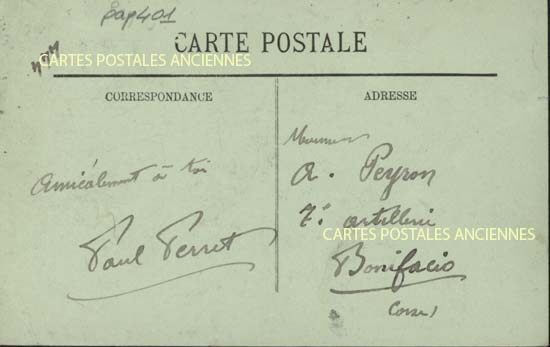 gap401
CARTE POSTALE
CARTES POSTALES ANCIENNES
CORRESPONDANCE
Amicalement à toi
Paul Perret
ADRESSE
Monsieur
A. Peyron
7e artillerie
CARTES POSTALES ANCIENNES
Bonifacio
(Corse)